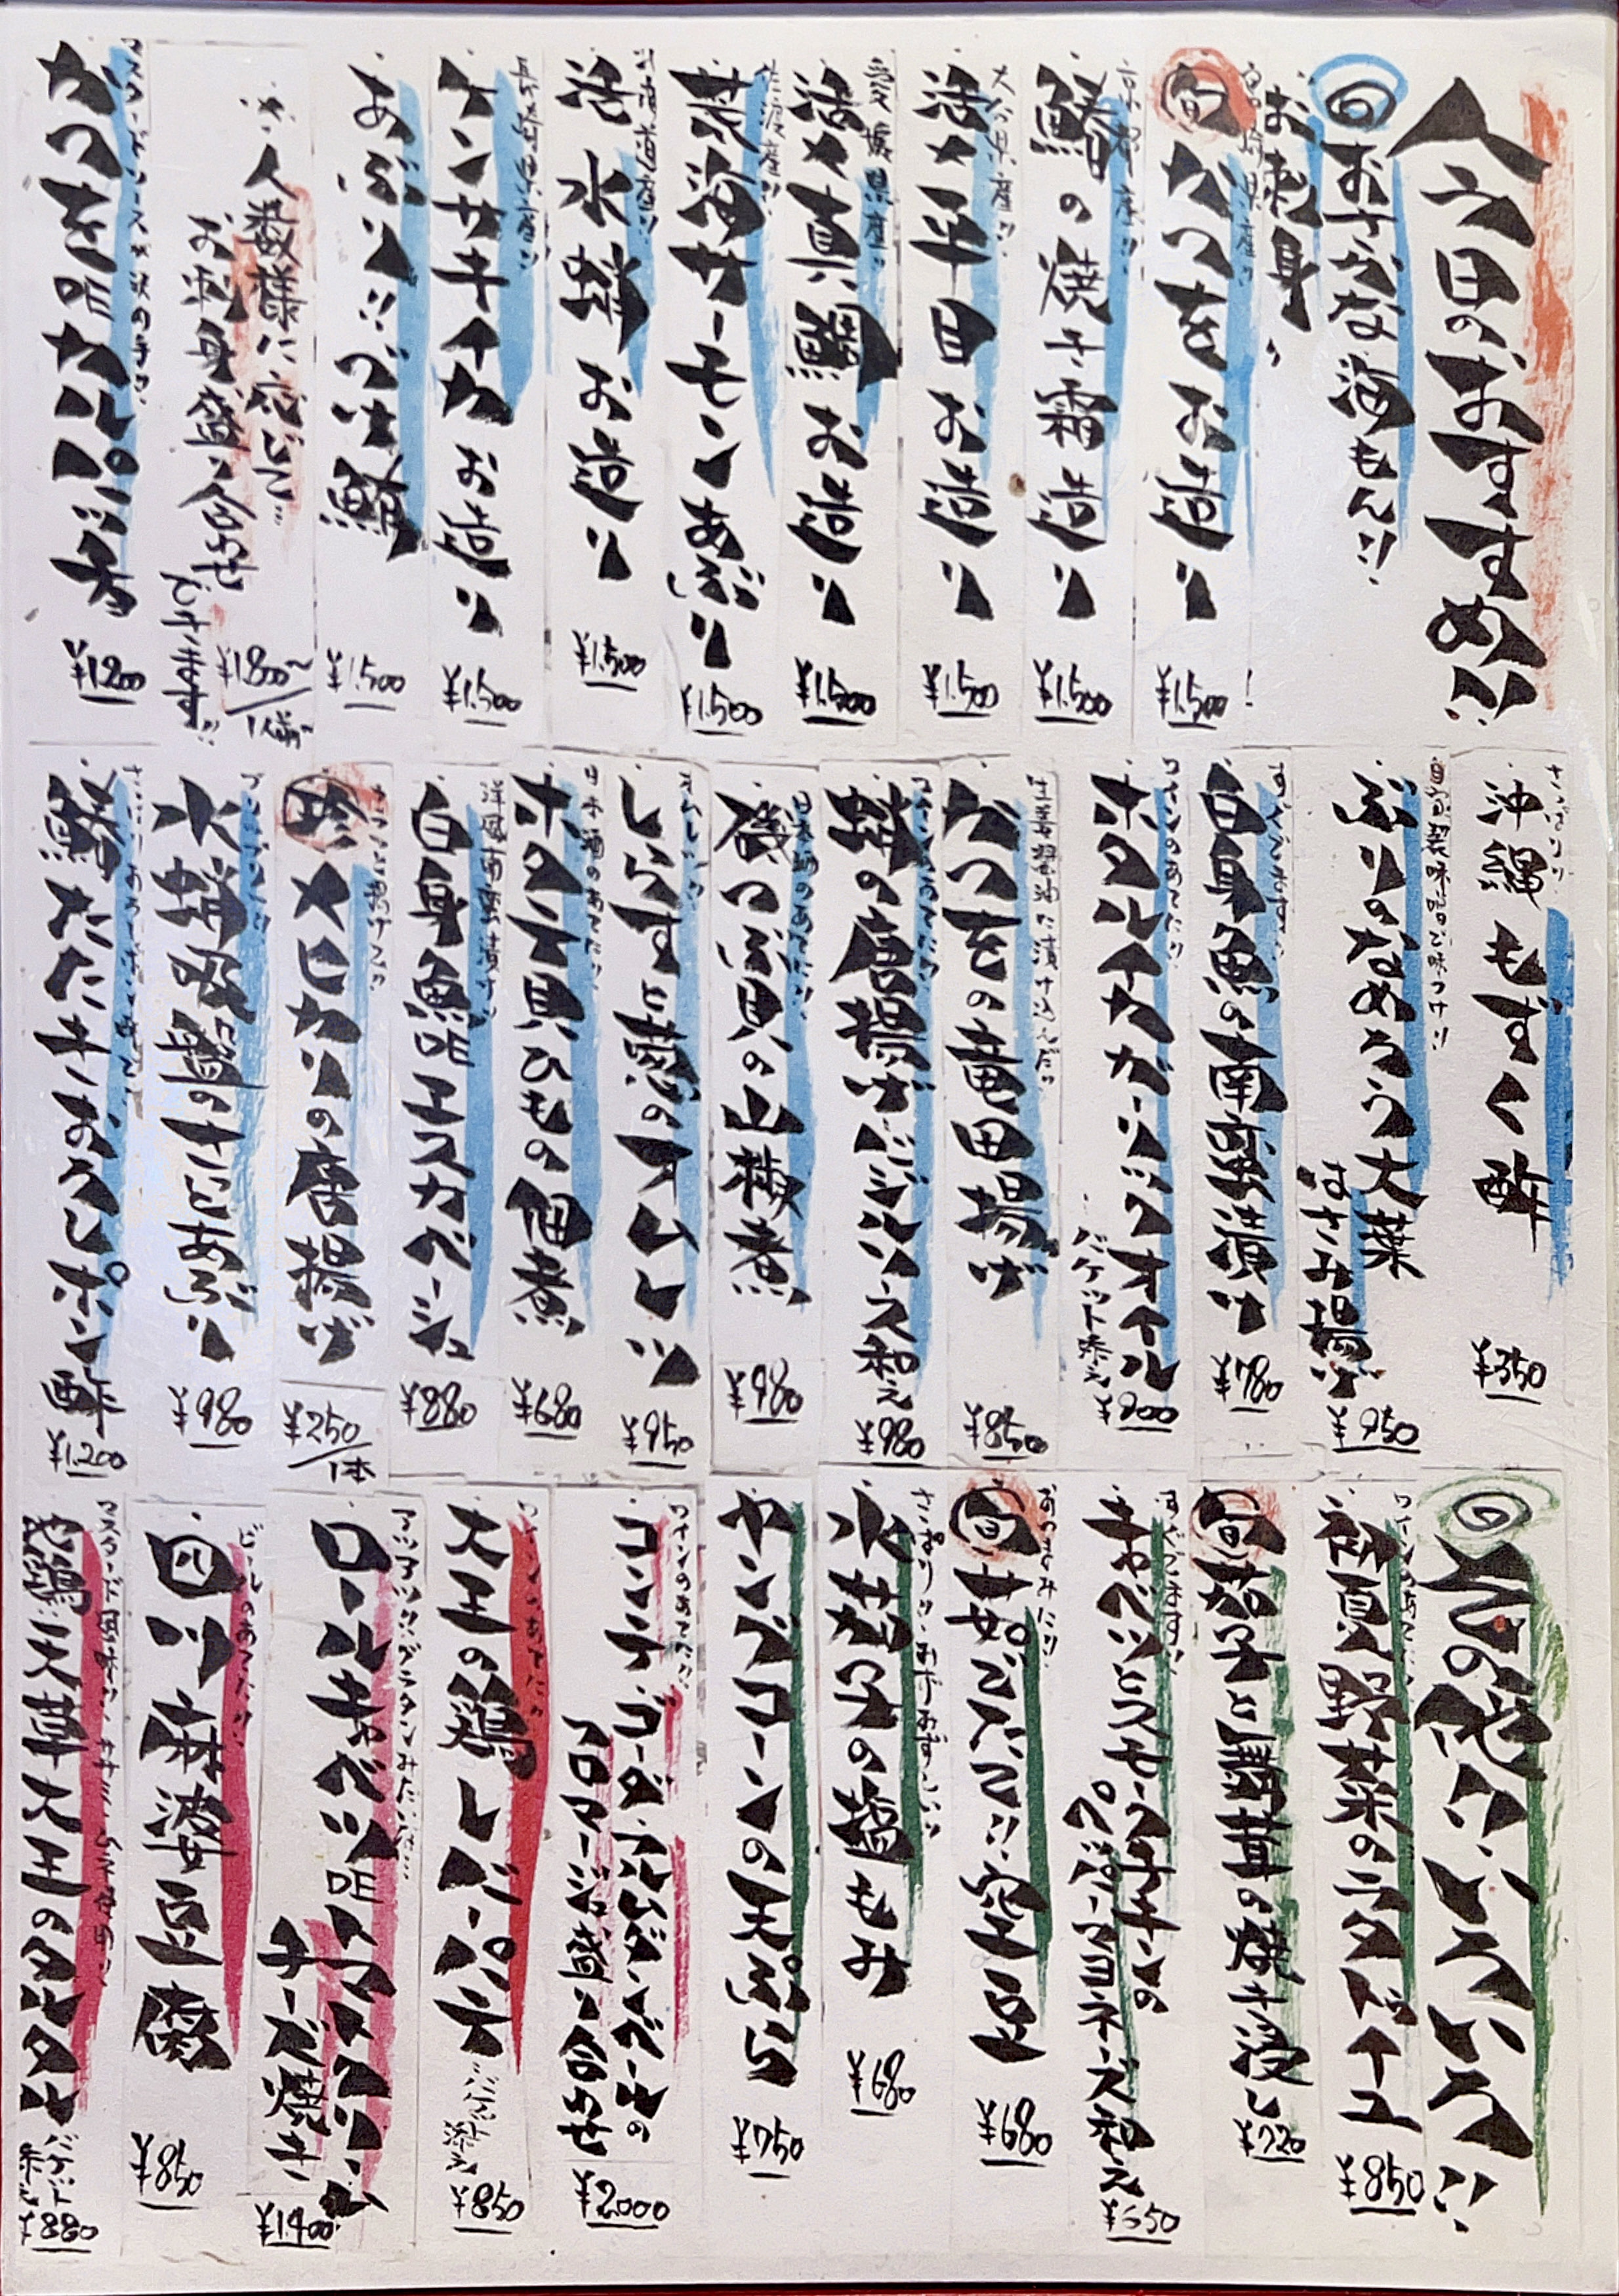 今日のおすすめ!!
旬おさかな海もん!!
お刺身
宮崎県産!!
旬かつをお造り
¥1,500
京都産!!
鰆の焼き霜造り
¥1,500
大分県産!!
活〆平目お造り
¥1,500
愛媛県産!!
活〆真鯛お造り
¥1,500
佐渡産!!
荒海サーモンあぶり
¥1,500
北海道産!!
活水蛸お造り
¥1,500
長崎県産!!
ケンサキイカお造り
¥1,500
あぶり!!づけ鮪
¥1,500
人数様に応じて…
お刺身盛り合わせ
できます!!
¥1,800~/1人前
マスタードソースが決め手!!
かつをのカルパッチョ
¥1,200
さっぱり!!
沖縄もずく酢
¥350
自家製味噌で味つけ!!
ぶりのなめろう大葉
はさみ揚げ
¥950
白身魚の南蛮漬け
¥780
ワインのあてに!!
ホタルイカガーリックオイル
バケット添え
¥900
生姜醤油に漬け込んだ!!
かつをの竜田揚げ
¥850
ワインのあてに!!
蛸の唐揚げバジルソース和え
¥980
日本酒のあてに!!
磯つぶ貝の山椒煮
¥980
しらすと葱のオムレツ
¥950
日本酒のあてに!!
ホタテ貝ひもの佃煮
¥680
洋風南蛮漬け!!
白身魚のエスカベーシュ
¥880
さっと揚げて!!
珍メヒカリの唐揚げ
¥250/1本
水蛸吸盤のさっとあぶり
¥980
鰆たたきおろしポン酢
¥1,200
旬の菜!!
ワインのあてに!!
裏野菜のラタトゥイユ
¥850
旬筍と蕈の焼き浸し
¥720
キャベツとスモークチキンの
ペッパーマヨネーズ和え
¥550
おつまみに!!
旬茹でたて!!空豆
¥680
さっぱり!!みずみずしい
水茄子の塩もみ
¥680
ヤングコーンの天ぷら
¥750
ワインのあてに!!
コンテ、ゴーダ、カマンベールの
フロマージュ盛り合わせ
¥2,000
ワインのあてに!!
大王の鶏レバーパテ
バケット添え
¥850
アツアツ!!グラタンみたいな…
ロールキャベツのトマトソース
チーズ焼き
¥1,400
ビールのあてに!!
四川麻婆豆腐
¥850
地鶏天草大王のタルタル
バケット添え
¥880